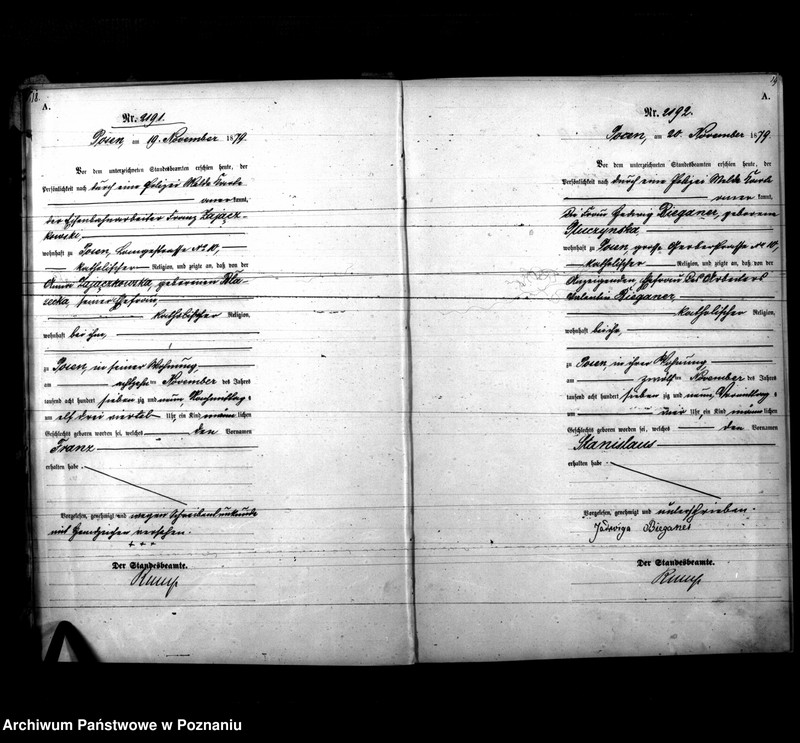 18.
A.
Nr. 2191.
Posen, am 19. November 1879.
Vor dem unterzeichneten Standesbeamten erschien heute, der
Persönlichkeit nach durch eine Polizei Melde Karte
anerkannt,
der Eisenbahnarbeiter Franz Zającz-
kowski,
wohnhaft zu Posen, Langestrasse No 10,
katholischer Religion, und zeigte an, daß von der
Zajączkowska, geborenen
seiner Ehefrau,
katholischer Religion,
wohnhaft bei ihm,
zu Posen, in seiner Wohnung,
am November des Jahres
tausend acht hundert sieben zig und neun, Nachmittags
um elf drei viertel Uhr ein Kind männlichen
Geschlechts geboren worden sei, welches den Vornamen
Franz
erhalten habe.
Vorgelesen, genehmigt und wegen Schreibensunkunde
mit Handzeichen versehen.
+ + +
Der Standesbeamte.
19
A.
Nr. 2192.
Posen, am 20. November 1879.
Vor dem unterzeichneten Standesbeamten erschien heute, der
Persönlichkeit nach durch eine Polizei Melde Karte
anerkannt,
Die Frau Hedwig Bieganez, geborene
wohnhaft zu Posen, große Gerberstrasse No 10,
katholischer Religion, und zeigte an, daß von der
Anzeigenden, Ehefrau des Arbeiters
Valentin Bieganez
katholischer Religion,
wohnhaft bei ihr,
zu Posen, in ihrer Wohnung
am zwölften November des Jahres
tausend acht hundert sieben zig und neun, Vormittags
um vier Uhr, ein Kind männlichen
Geschlechts geboren worden sei, welches den Vornamen
Stanislaus
erhalten habe.
Vorgelesen, genehmigt und unterschrieben.
Jadwiga Bieganes
Der Standesbeamte.
Archiwum Państwowe w Poznaniu